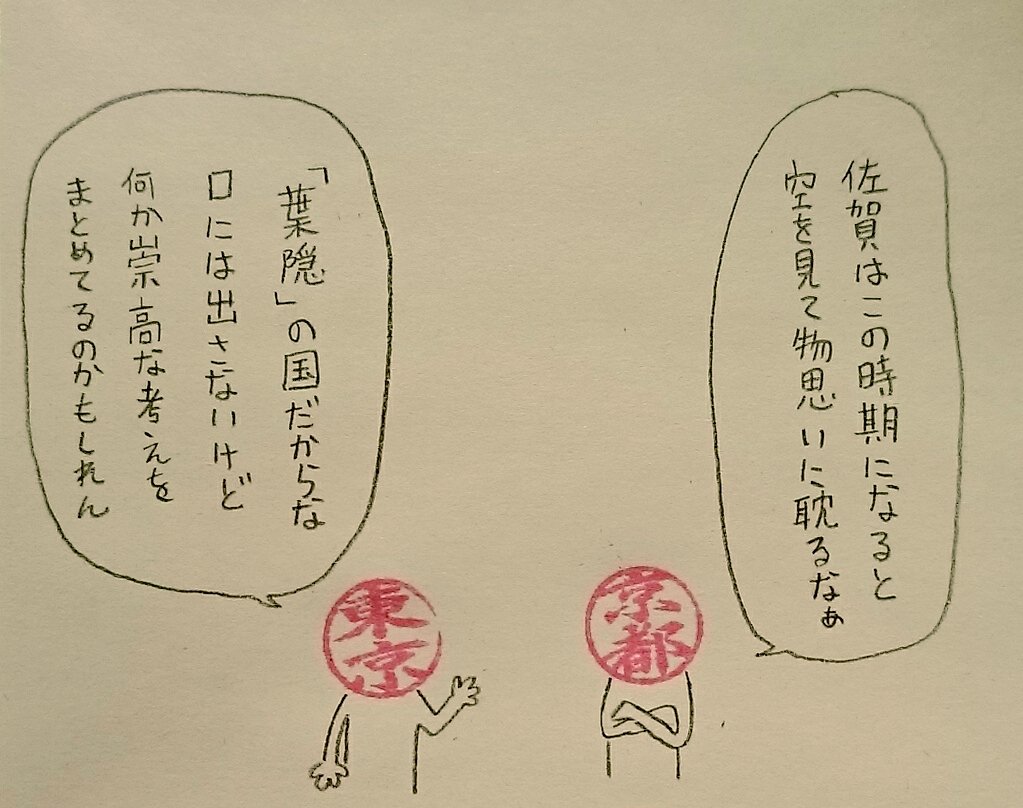 佐賀はこの時期になると
空を見て物思いに耽るなぁ
「葉隠」の国だからな
口には出さないけど
何か崇高な考えを
まとめてるのかもしれん
東京
京都